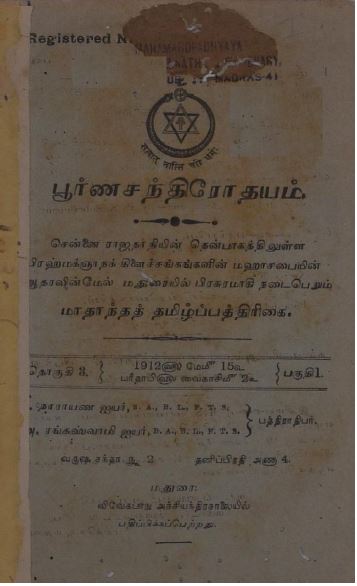 Registered N
MAHAMAHOPADHYAYA
MADRAS-41
सत्यात् नास्ति परो धर्मः
பூர்ணசந்திரோதயம்.
சென்னை ராஜதானியின் தென்பாகத்திலுள்ள
பிரஹ்மக்ஞானக் கிளைச்சங்கங்களின் மஹாசபையின்
ஆதரவின்மேல் மதுரையில் பிரசுரமாகி நடைபெறும்
மாதாந்தத் தமிழ்ப்பத்திரிகை.
தொகுதி 3.
1912௵ மேமீ 15௳
பரீதாபி௵ வைகாசிமீ 2௳
பகுதி 1.
நாராயண ஐயர், B. A., B. L., F. T. S.
ரங்கஸ்வாமி ஐயர், B. A., B. L., F. T. S.
பத்திராதிபர்.
வருஷ சந்தா ரூ. 2 தனிப்பிரதி அணா 4.
மதுரை:
விவேகபாநு அச்சியந்திரசாலையில்
பதிப்பிக்கப்பெற்றது.